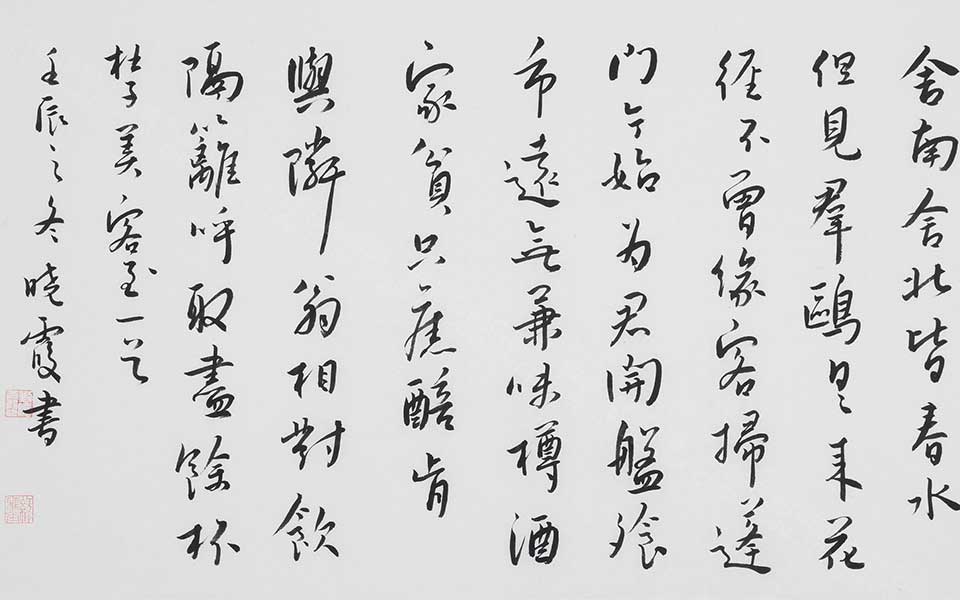 舍南舍北皆春水
但見羣鷗日日来花
徑不曾緣客掃蓬
門今始为君開盤飧
市遠無兼味樽酒
家貧只舊醅肯
與隣翁相對飲
隔籬呼取盡餘杯
杜子美客至一首
壬辰之冬曉霞書